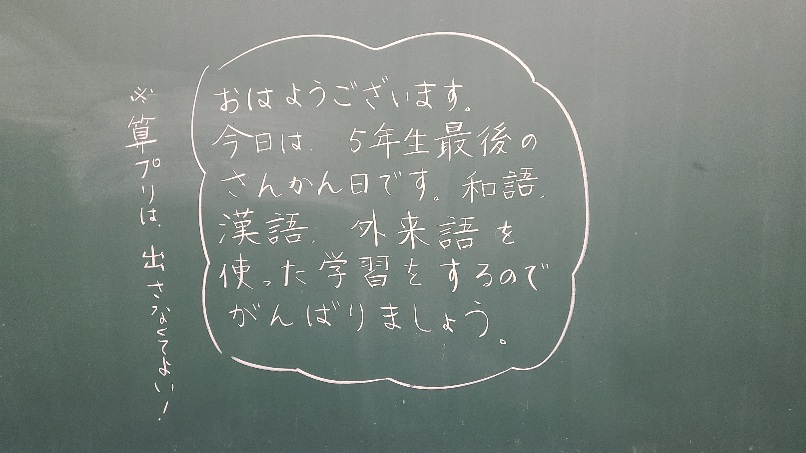 おはようございます。
今日は、5年生最後の
さんかん日です。和語、
漢語、外来語を
使った学習をするので
がんばりましょう。
※算プリは、出さなくてよい！